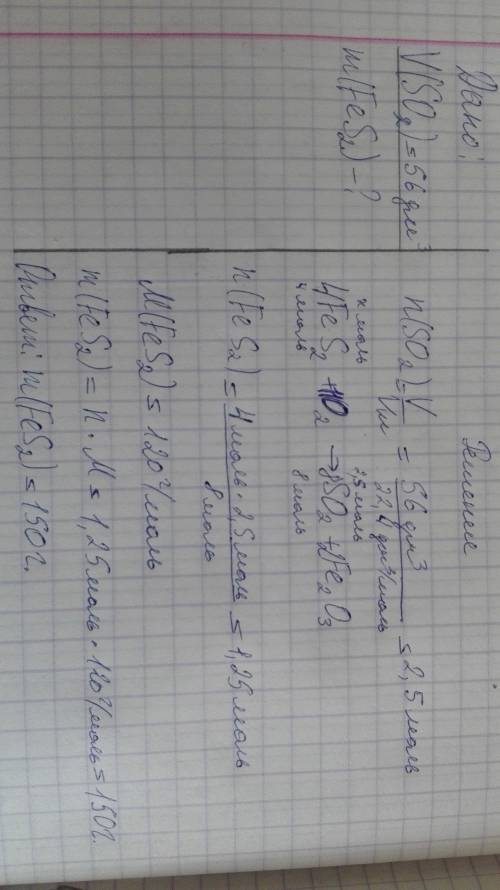 Дано:
V(SO₂) = 56 дм³
m(FeS₂) - ?
Решение
n(SO₂) = V/Vм = 56 дм³/22,4 дм³/моль = 2,5 моль
x моль 2,5 моль
4FeS₂ + 11O₂ → 8SO₂ + 2Fe₂O₃
4 моль 8 моль
n(FeS₂) = 4 моль · 2,5 моль/8 моль = 1,25 моль
M(FeS₂) = 120 г/моль
m(FeS₂) = n · M = 1,25 моль · 120 г/моль = 150 г.
Ответ: m(FeS₂) = 150 г.